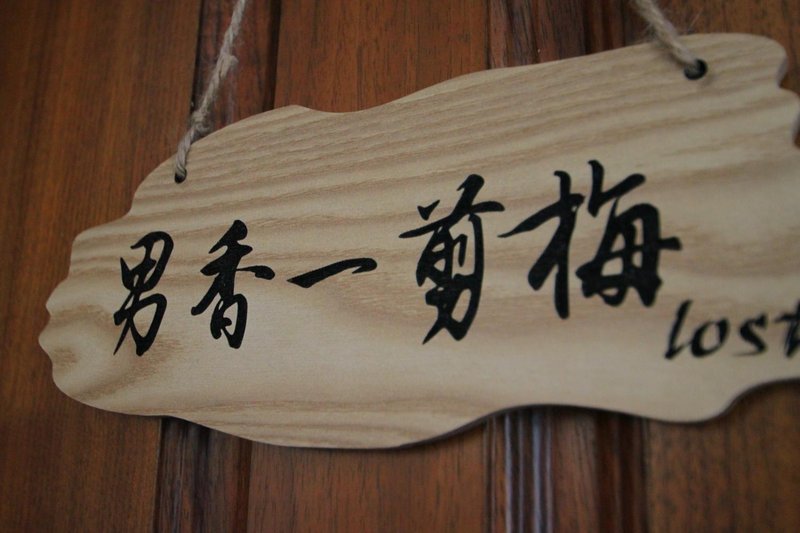 男香一剪梅
lost